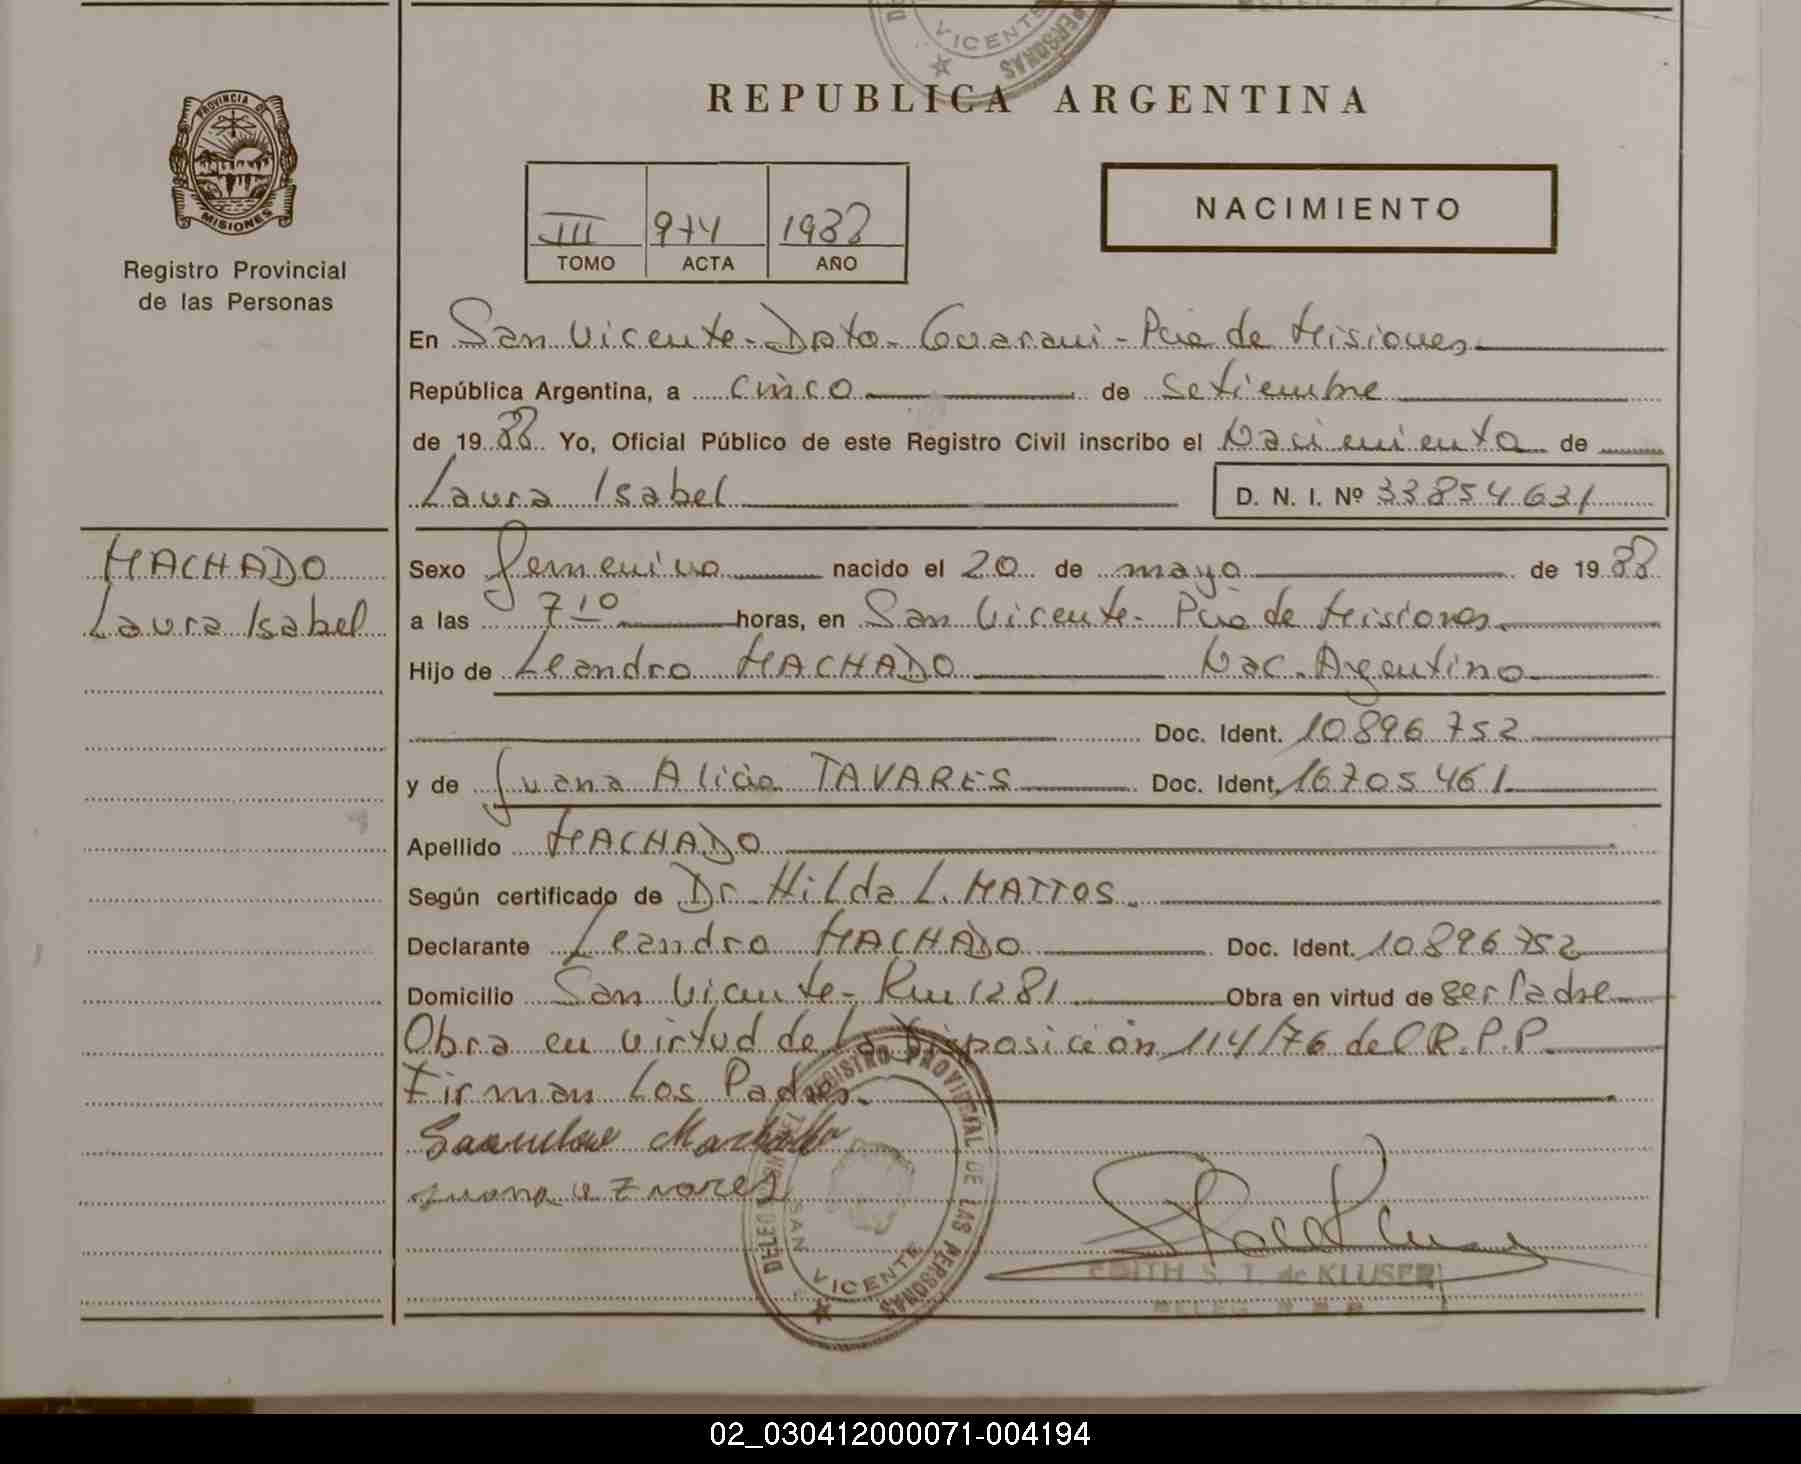 VICENTE
PERSONAS
REPUBLICA ARGENTINA
PROVINCIA DE
MISIONES
Registro Provincial
de las Personas
III 974 1988
TOMO ACTA AÑO
NACIMIENTO
En San Vicente - Dpto - Guarani - Pcia de Misiones
República Argentina, a cinco de Setiembre
de 1988 Yo, Oficial Público de este Registro Civil inscribo el Nacimiento de
Laura Isabel D. N. I. Nº 33854631
MACHADO
Laura Isabel
Sexo femenino nacido el 20 de mayo de 1988
a las 7 10 horas, en San Vicente - Pcia de Misiones
Hijo de Leandro MACHADO Nac. Argentino
Doc. Ident. 10896 752
y de Juana Alicia TAVARES Doc. Ident. 16705 461
Apellido MACHADO
Según certificado de Dr Hilda L. MATTOS
Declarante Leandro MACHADO Doc. Ident. 10896752
Domicilio San Vicente - Km 1281 Obra en virtud de ser Padre
Obra en virtud de la Disposición 114/76 del R.P.P.
Firman los Padres.
Machado
REGISTRO PROVINCIAL DE LAS PERSONAS
SAN VICENTE
EDITH S. T. de KLUSER
02_030412000071-004194